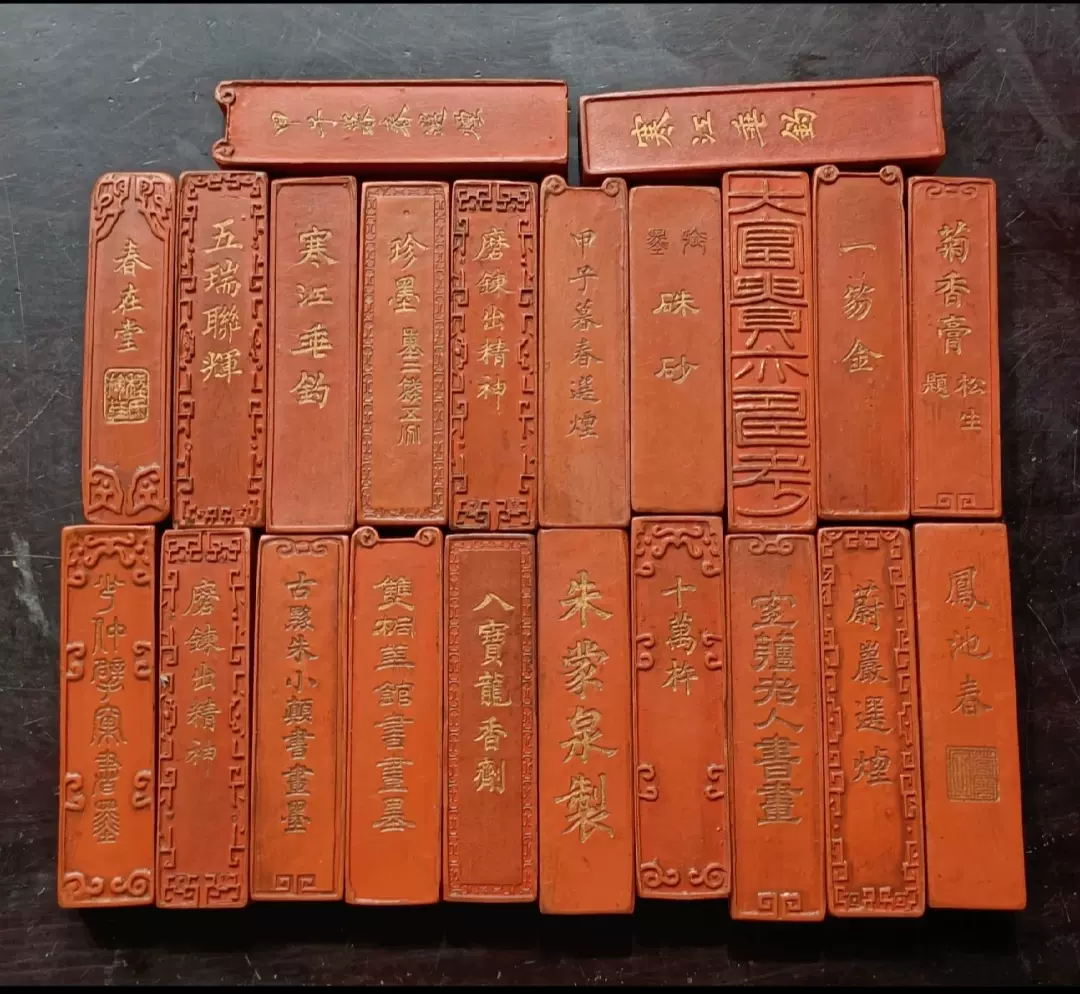 甲子暮春選煙
寒江垂釣
春在堂
五瑞聯輝
寒江垂釣
珍墨
磨鍊出精神
甲子暮春選煙
硃砂
大富貴亦壽考
一笏金
菊香膏
松生題
磨鍊出精神
古黟朱小顛書畫墨
館書畫墨
八寶龍香劑
朱蒙泉製
十萬杵
老人書畫
蔚巖選煙
鳳池春